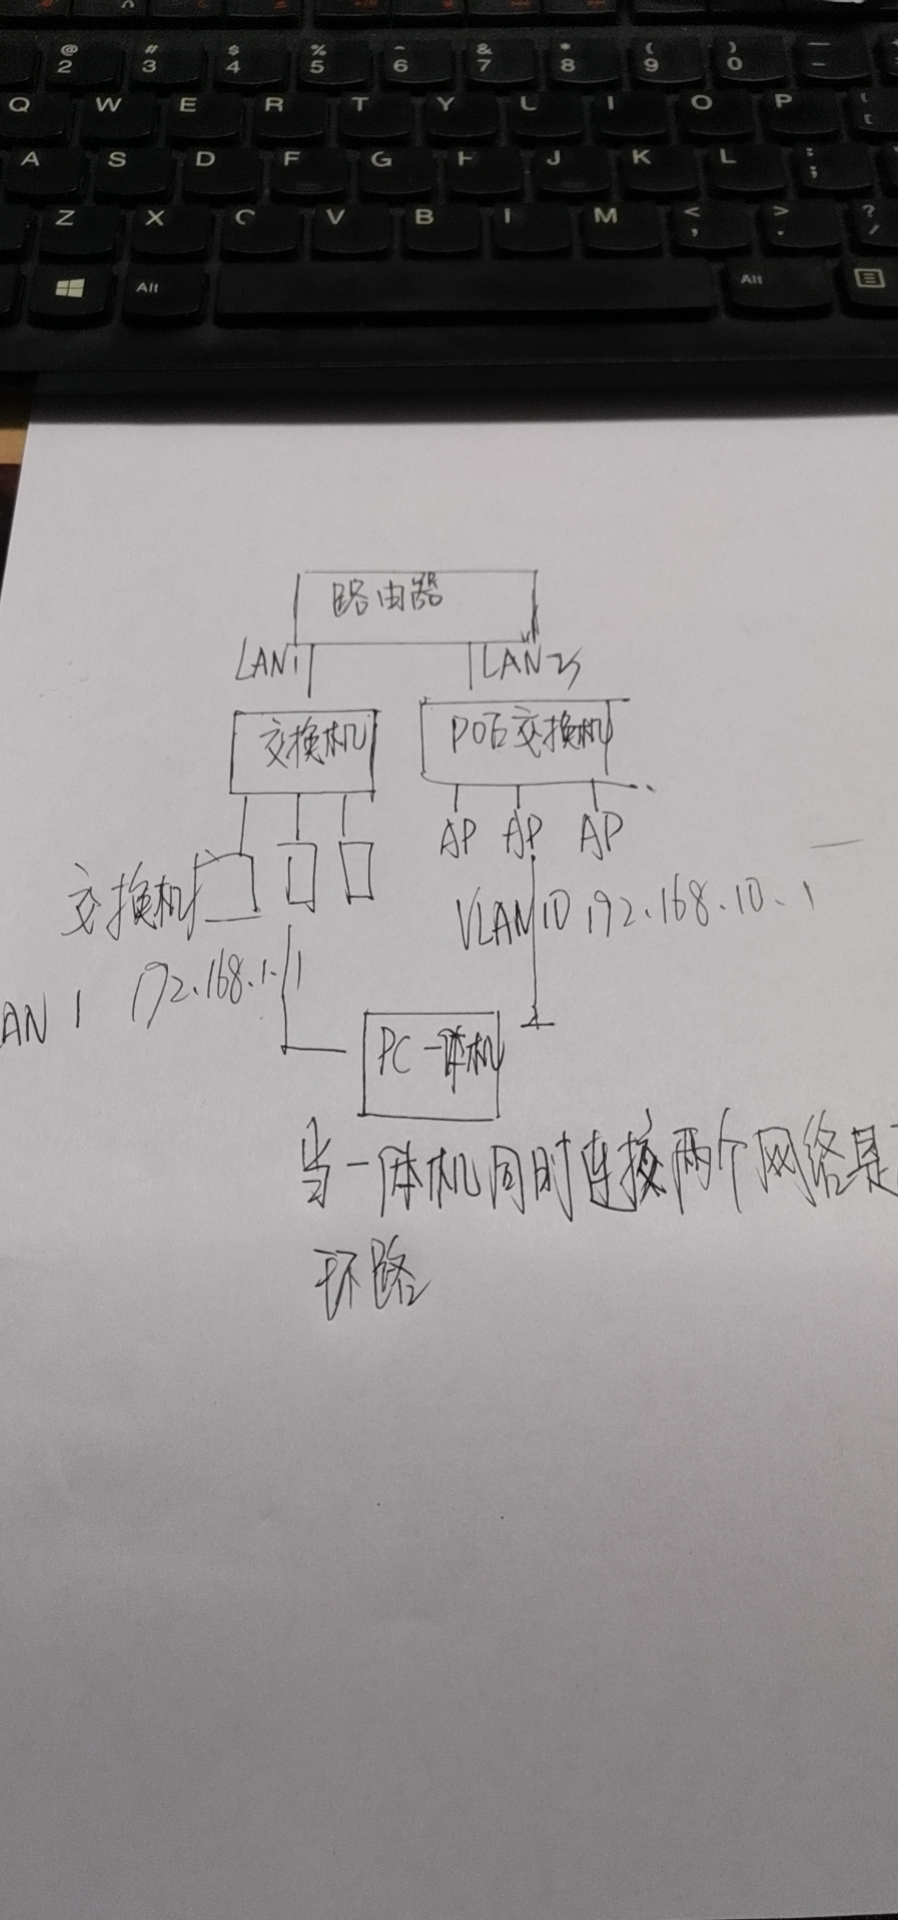 @ # $ % ^ & * ( ) _
2 3 4 5 6 7 8 9 0 -
Q W E R T Y U I O P
A S D F G H J K L : ;
Z X C V B M < , > . ? /
Alt Alt
路由器
LAN1 LAN2
交换机 POE交换机
AP AP AP
交换机
VLAN10 192.168.10.1
AN 1 192.168.1.1
PC一体机
当一体机同时连接两个网络是
环路